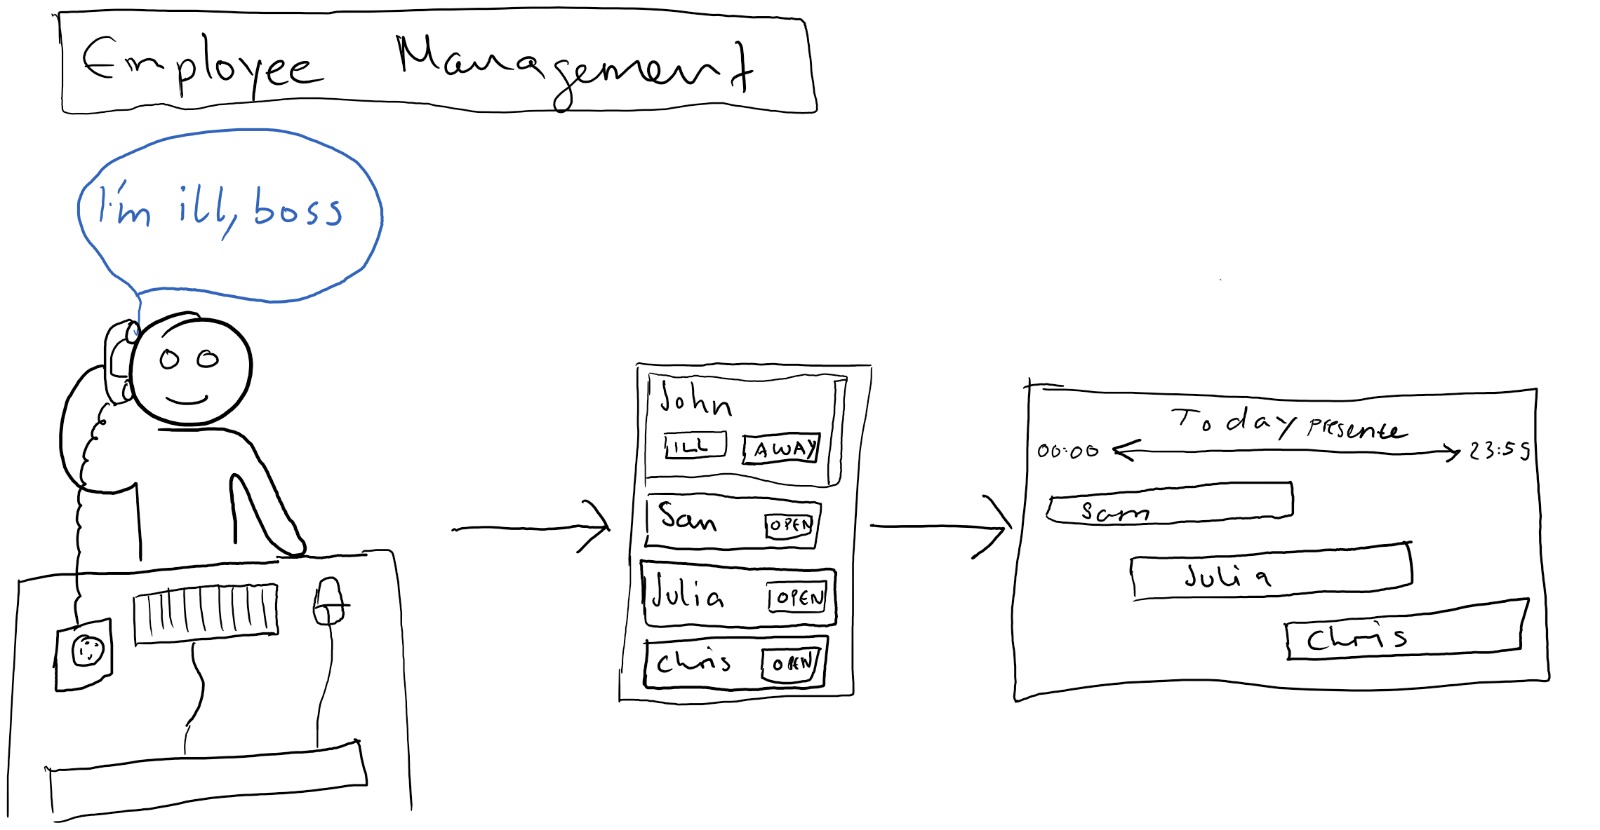 Employee Management
I'm ill, boss
John
ILL AWAY
San OPEN
Julia OPEN
Chris OPEN
Today presente
00:00 23:59
Sam
Julia
Chris